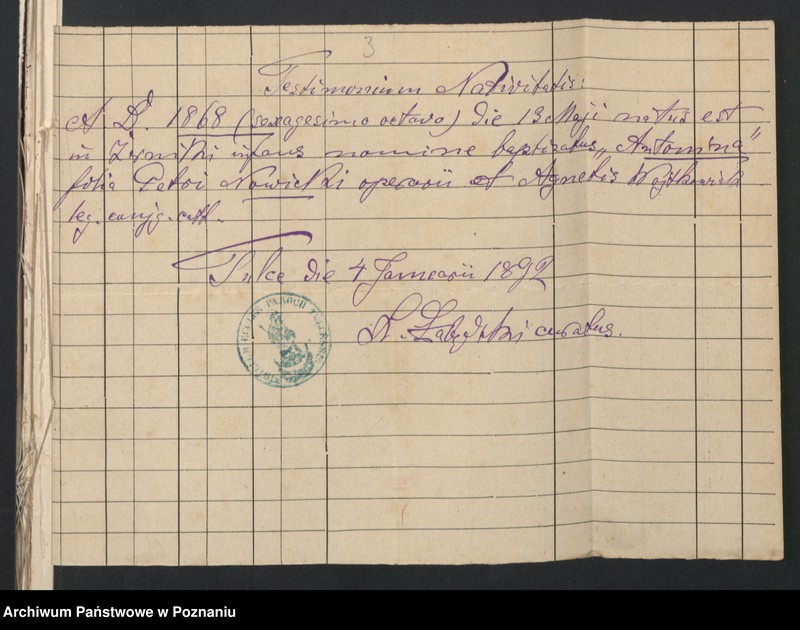 3
Testimonium Nativitatis:
A D. 1868 (sexagesimo octavo) die 13 Maji natus est
in infans nomine baptisatus „Antonina"
filia Petri Nowicki operarii et Agnetis
leg. conjg. cath.
Tulce die 4 Januarii 1892
curatus.
Archiwum Państwowe w Poznaniu